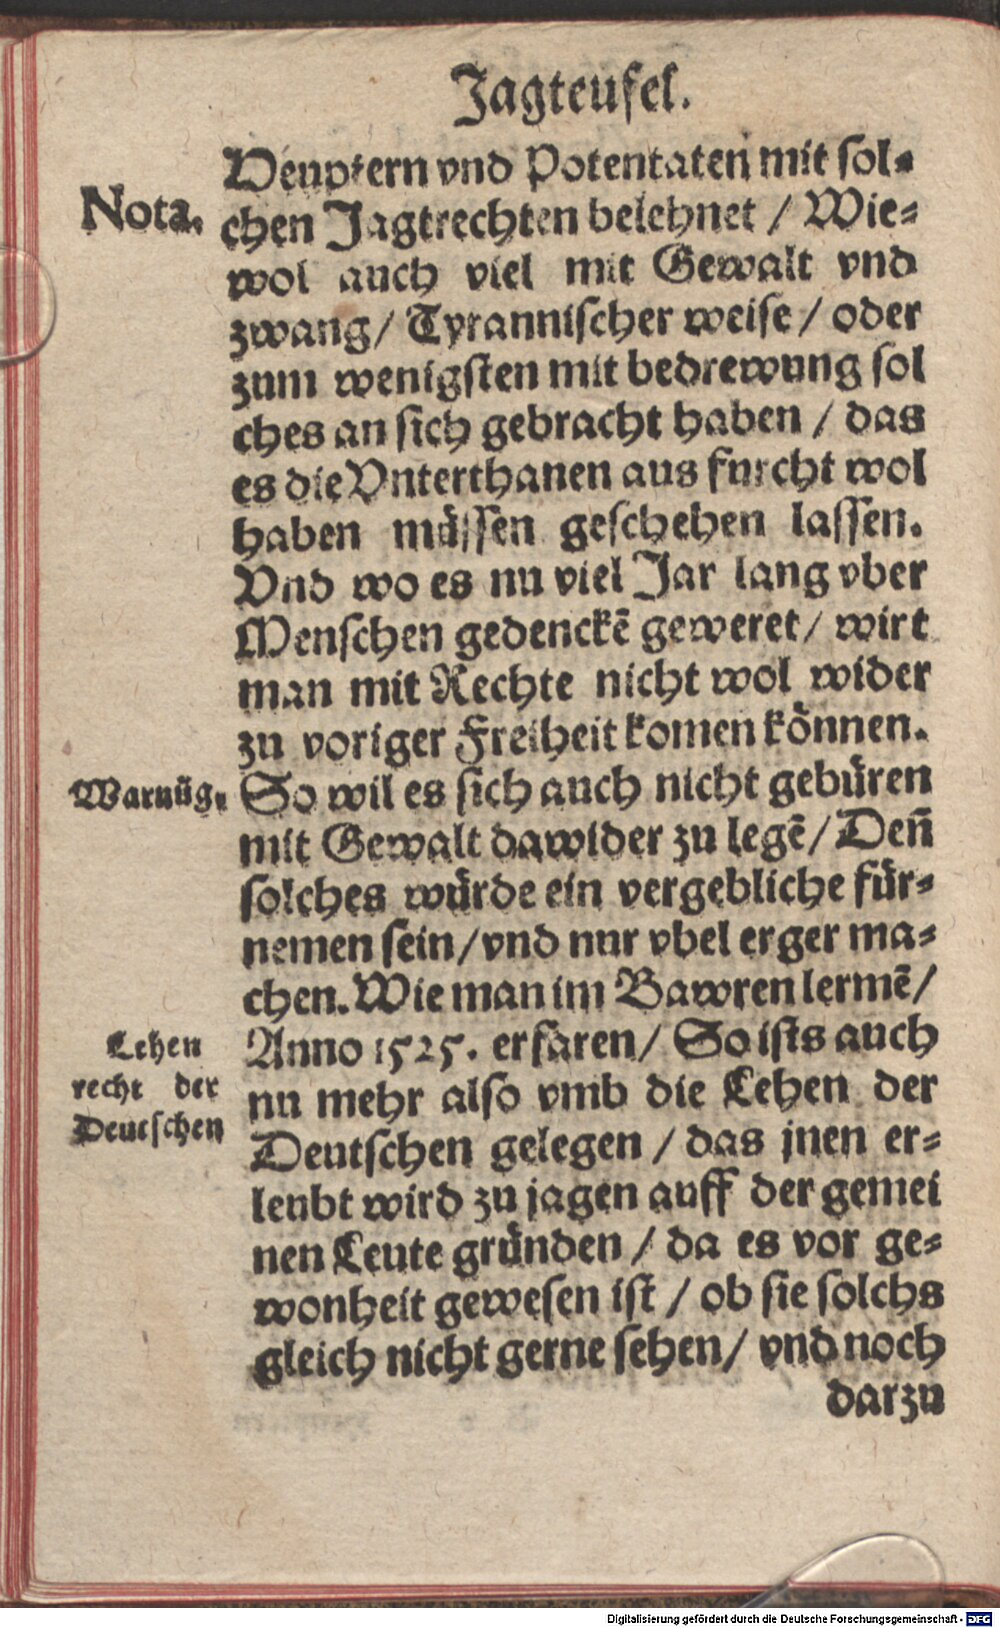 Jagteufel.
Heuptern vnd Potentaten mit sol⸗
Nota.
chen Jagtrechten belehnet / Wie⸗
wol auch viel mit Gewalt vnd
zwang/ Tyrannischer weise / oder
zum wenigsten mit bedrewung sol
ches an sich gebracht haben / das
es die Vnterthanen aus furcht wol
haben müssen geschehen lassen.
Vnd wo es nu viel Jar lang vber
Menschen gedenckē geweret/ wirt
man mit Rechte nicht wol wider
zu voriger Freiheit komen können.
Warnūg.
So wil es sich auch nicht gebüren
mit Gewalt dawider zu legē/ Deñ
solches würde ein vergebliche für⸗
nemen sein/ vnd nur vbel erger ma⸗
chen. Wie man im Bawren lermē/
Anno 1525. erfaren/ So ists auch
Lehen
recht der
Deutschen
nu mehr also vmb die Lehen der
Deutschen gelegen / das jnen er⸗
leubt wird zu jagen auff der gemei
nen Leute gründen / da es vor ge⸗
wonheit gewesen ist / ob sie solchs
gleich nicht gerne sehen/ vnd noch
darzu
Digitalisierung gefördert durch die Deutsche Forschungsgemeinschaft - DFG